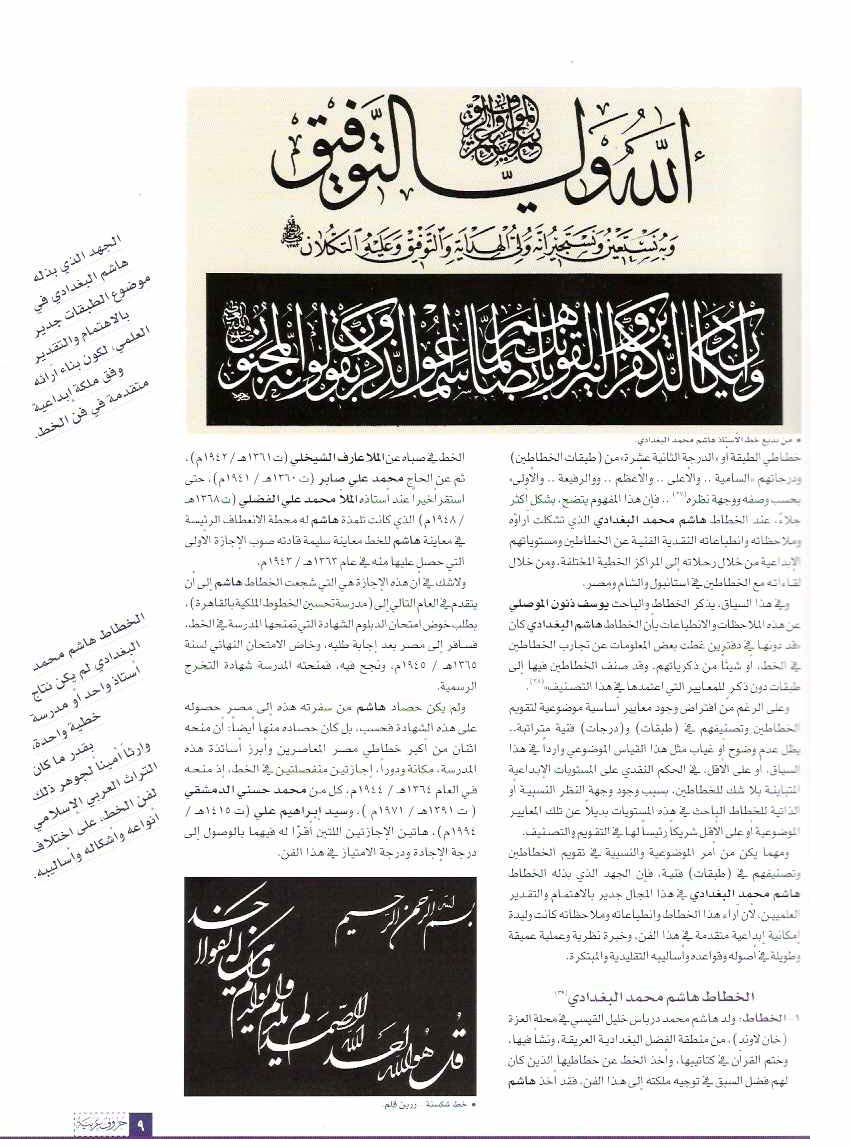 الله ولي التوفيق
وبه نستعين ونستجير إنه ولي الهداية والتوفيق وعليه التكلان
وإن يكاد الذين كفروا ليزلقونك بأبصارهم لما سمعوا الذكر ويقولون إنه لمجنون
• من بديع خط الأستاذ هاشم محمد البغدادي.
خطاطي الطبقة أو «الدرجة الثانية عشرة» من (طبقات الخطاطين)
ودرجاتهم «السامية .. والأعلى .. والأعظم .. ووالرفيعة .. والأولى»
بحسب وصفه ووجهة نظره .. فإن هذا المفهوم يتضح، بشكل أكثر
جلاءً، عند الخطاط هاشم محمد البغدادي الذي تشكلت آراؤه
وملاحظاته وانطباعاته النقدية الفنية عن الخطاطين ومستوياتهم
الإبداعية من خلال رحلاته إلى المراكز الخطية المختلفة، ومن خلال
لقاءاته مع الخطاطين في استانبول والشام ومصر.
وفي هذا السياق، يذكر الخطاط والباحث يوسف ذنون الموصلي
عن هذه الملاحظات والانطباعات بأن الخطاط هاشم البغدادي كان
«قد دونها في دفترين غطت بعض المعلومات عن تجارب الخطاطين
في الخط، أو شيئاً من ذكرياتهم. وقد صنف الخطاطين فيها إلى
طبقات دون ذكر للمعايير التي اعتمدها في هذا التصنيف»(٣٨).
وعلى الرغم من افتراض وجود معايير أساسية موضوعية لتقويم
الخطاطين وتصنيفهم في (طبقات) و(درجات) فنية متراتبة..
يظل عدم وضوح أو غياب مثل هذا القياس الموضوعي وارداً في هذا
السياق، أو على الأقل، في الحكم النقدي على المستويات الإبداعية
المتباينة بلا شك للخطاطين، بسبب وجود وجهة النظر النسبية أو
الذاتية للخطاط الباحث في هذه المستويات بديلاً عن تلك المعايير
الموضوعية أو على الأقل شريكاً رئيساً لها في التقويم والتصنيف.
ومهما يكن من أمر الموضوعية والنسبية في تقويم الخطاطين
وتصنيفهم في (طبقات) فنية، فإن الجهد الذي بذله الخطاط
هاشم محمد البغدادي في هذا المجال جدير بالاهتمام والتقدير
العلميين، لأن آراء هذا الخطاط وانطباعاته وملاحظاته كانت وليدة
إمكانية إبداعية متقدمة في هذا الفن، وخبرة نظرية وعملية عميقة
وطويلة في أصوله وقواعده وأساليبه التقليدية والمبتكرة.
الخطاط هاشم محمد البغدادي(٣٩)
١ - الخطاط: ولد هاشم محمد درباس خليل القيسي في محلة العزة
(خان لاوند)، من منطقة الفضل البغدادية العريقة، ونشأ فيها،
وختم القرآن في كتاتيبها، وأخذ الخط عن خطاطيها الذين كان
لهم فضل السبق في توجيه ملكته إلى هذا الفن، فقد أخذ هاشم
الخط في صباه عن الملا عارف الشيخلي (ت ١٣٦١هـ / ١٩٤٢م)،
ثم عن الحاج محمد علي صابر (ت ١٣٦٠هـ / ١٩٤١م)، حتى
استقر أخيراً عند أستاذه الملا محمد علي الفضلي (ت ١٣٦٨هـ
/ ١٩٤٨م) الذي كانت تلمذة هاشم له محطة الانعطاف الرئيسة
في معاينة هاشم للخط معاينة سليمة قادته صوب الإجازة الأولى
التي حصل عليها منه في عام ١٣٦٣هـ / ١٩٤٣م.
ولاشك في أن هذه الإجازة هي التي شجعت الخطاط هاشم إلى أن
يتقدم في العام التالي إلى (مدرسة تحسين الخطوط الملكية بالقاهرة)،
بطلب خوض امتحان الدبلوم الشهادة التي تمنحها المدرسة في الخط..
فسافر إلى مصر بعد إجابة طلبه، وخاض الامتحان النهائي لسنة
١٣٦٥هـ / ١٩٤٥م، ونجح فيه، فمنحته المدرسة شهادة التخرج
الرسمية.
ولم يكن حصاد هاشم من سفرته هذه إلى مصر حصوله
على هذه الشهادة فحسب، بل كان حصاده منها أيضاً: أن منحه
اثنان من أكبر خطاطي مصر المعاصرين وأبرز أساتذة هذه
المدرسة، مكانة ودوراً، إجازتين منفصلتين في الخط، إذ منحه
في العام ١٣٦٤هـ / ١٩٤٤م، كل من محمد حسني الدمشقي
(ت ١٣٩١هـ / ١٩٧١م)، وسيد إبراهيم علي (ت ١٤١٥هـ /
١٩٩٤م)، هاتين الإجازتين اللتين أقرّا له فيهما بالوصول إلى
درجة الإجادة ودرجة الامتياز في هذا الفن.
بسم الله الرحمن الرحيم
قل هو الله أحد الله الصمد لم يلد ولم يولد ولم يكن له كفوا أحد
• خط شكستة - زرين قلم.
الجهد الذي بذله
هاشم البغدادي في
موضوع الطبقات جدير
بالاهتمام والتقدير
العلمي، لكون بناء آرائه
وفق ملكة إبداعية
متقدمة في فن الخط.
الخطاط هاشم محمد
البغدادي لم يكن نتاج
أستاذ واحد أو مدرسة
خطية واحدة،
بقدر ما كان
وارثاً أميناً لجوهر ذلك
التراث العربي الإسلامي
لفن الخط، على اختلاف
أنواعه وأشكاله وأساليبه.
حروف عربية
٩